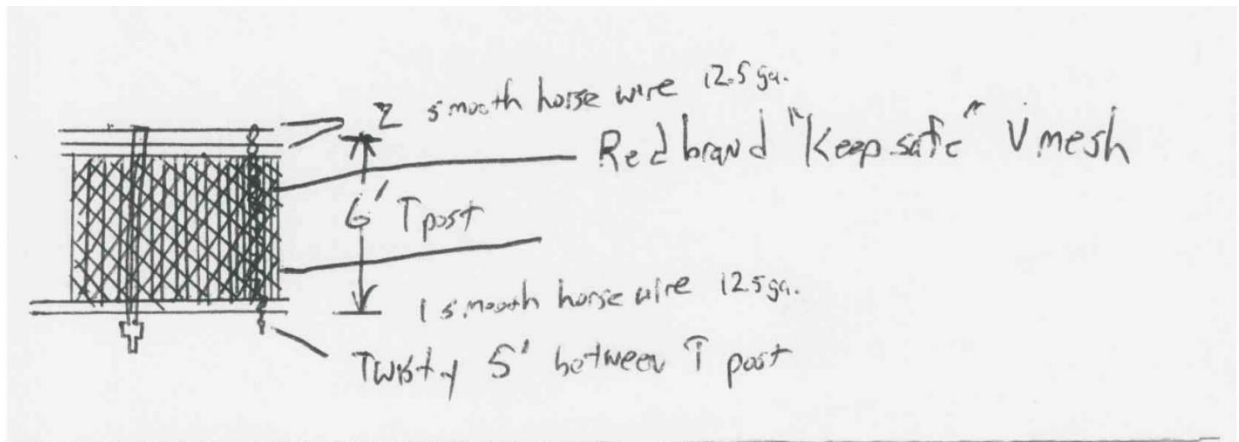 2 smooth horse wire 12.5 ga.
Red brand "Keep safe" V mesh
6' T post
1 smooth horse wire 12.5 ga.
Twisty 5' between T post